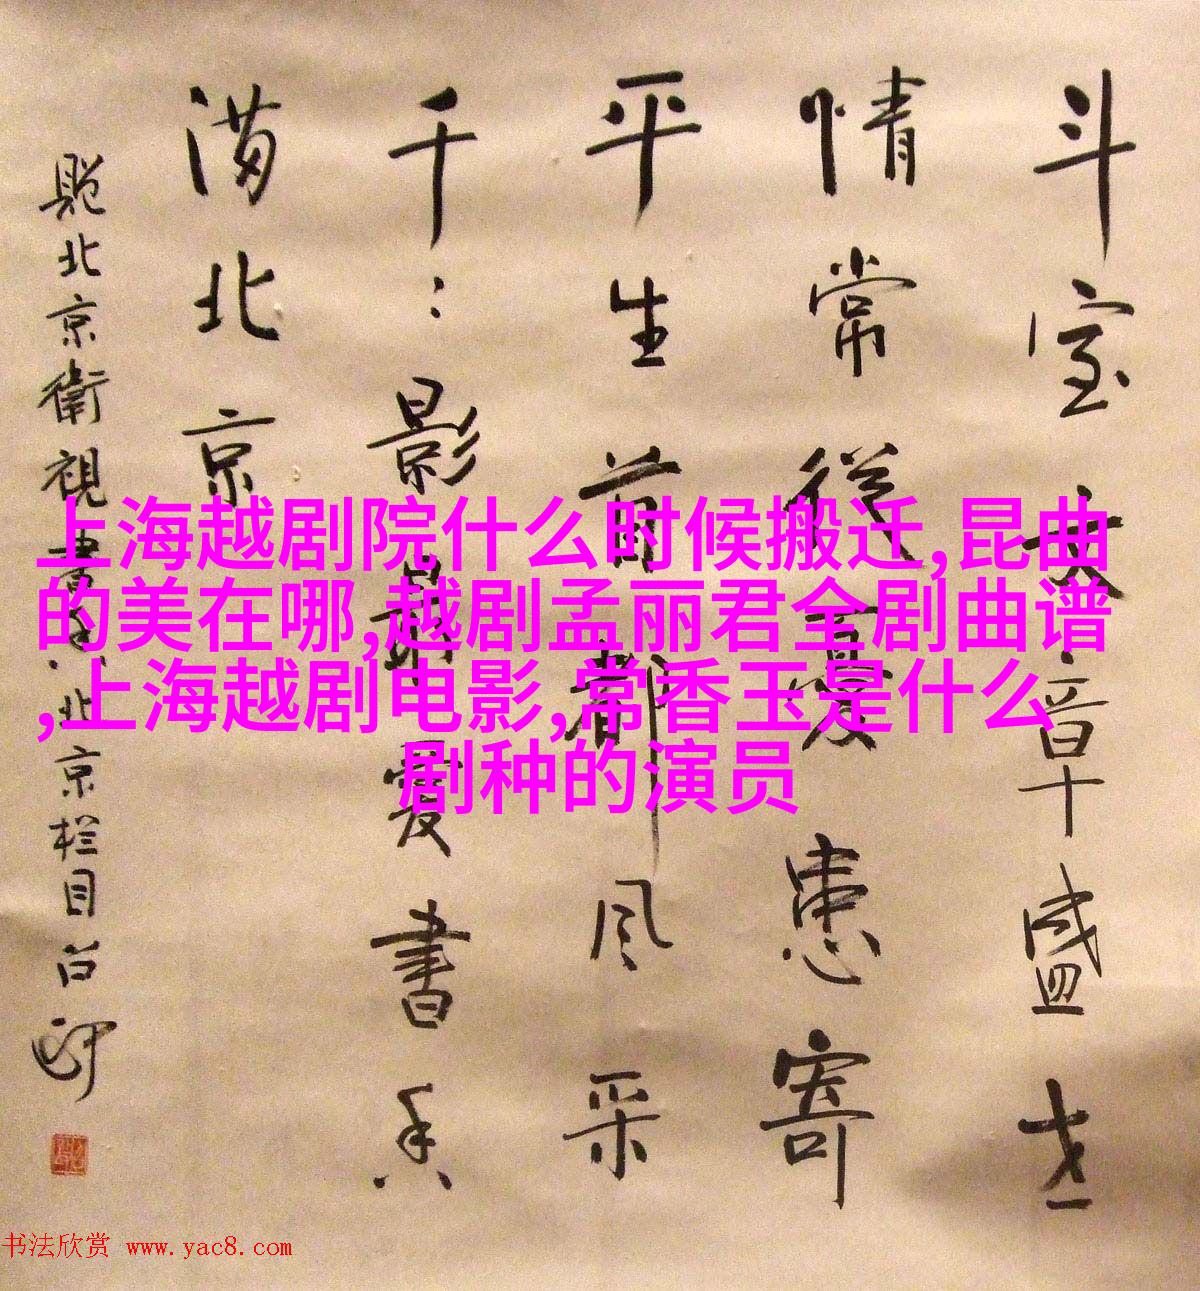 斗室文章盛世
情常從憂患寄
平生首都风采
千々影最愛書香
满北京
題北京衛視書香北京栏目
上海越剧院什么时候搬迁,昆曲
的美在哪,越剧孟丽君全剧曲谱
,上海越剧电影,常香玉是什么
剧种的演员
书法欣赏 www.yac8.com